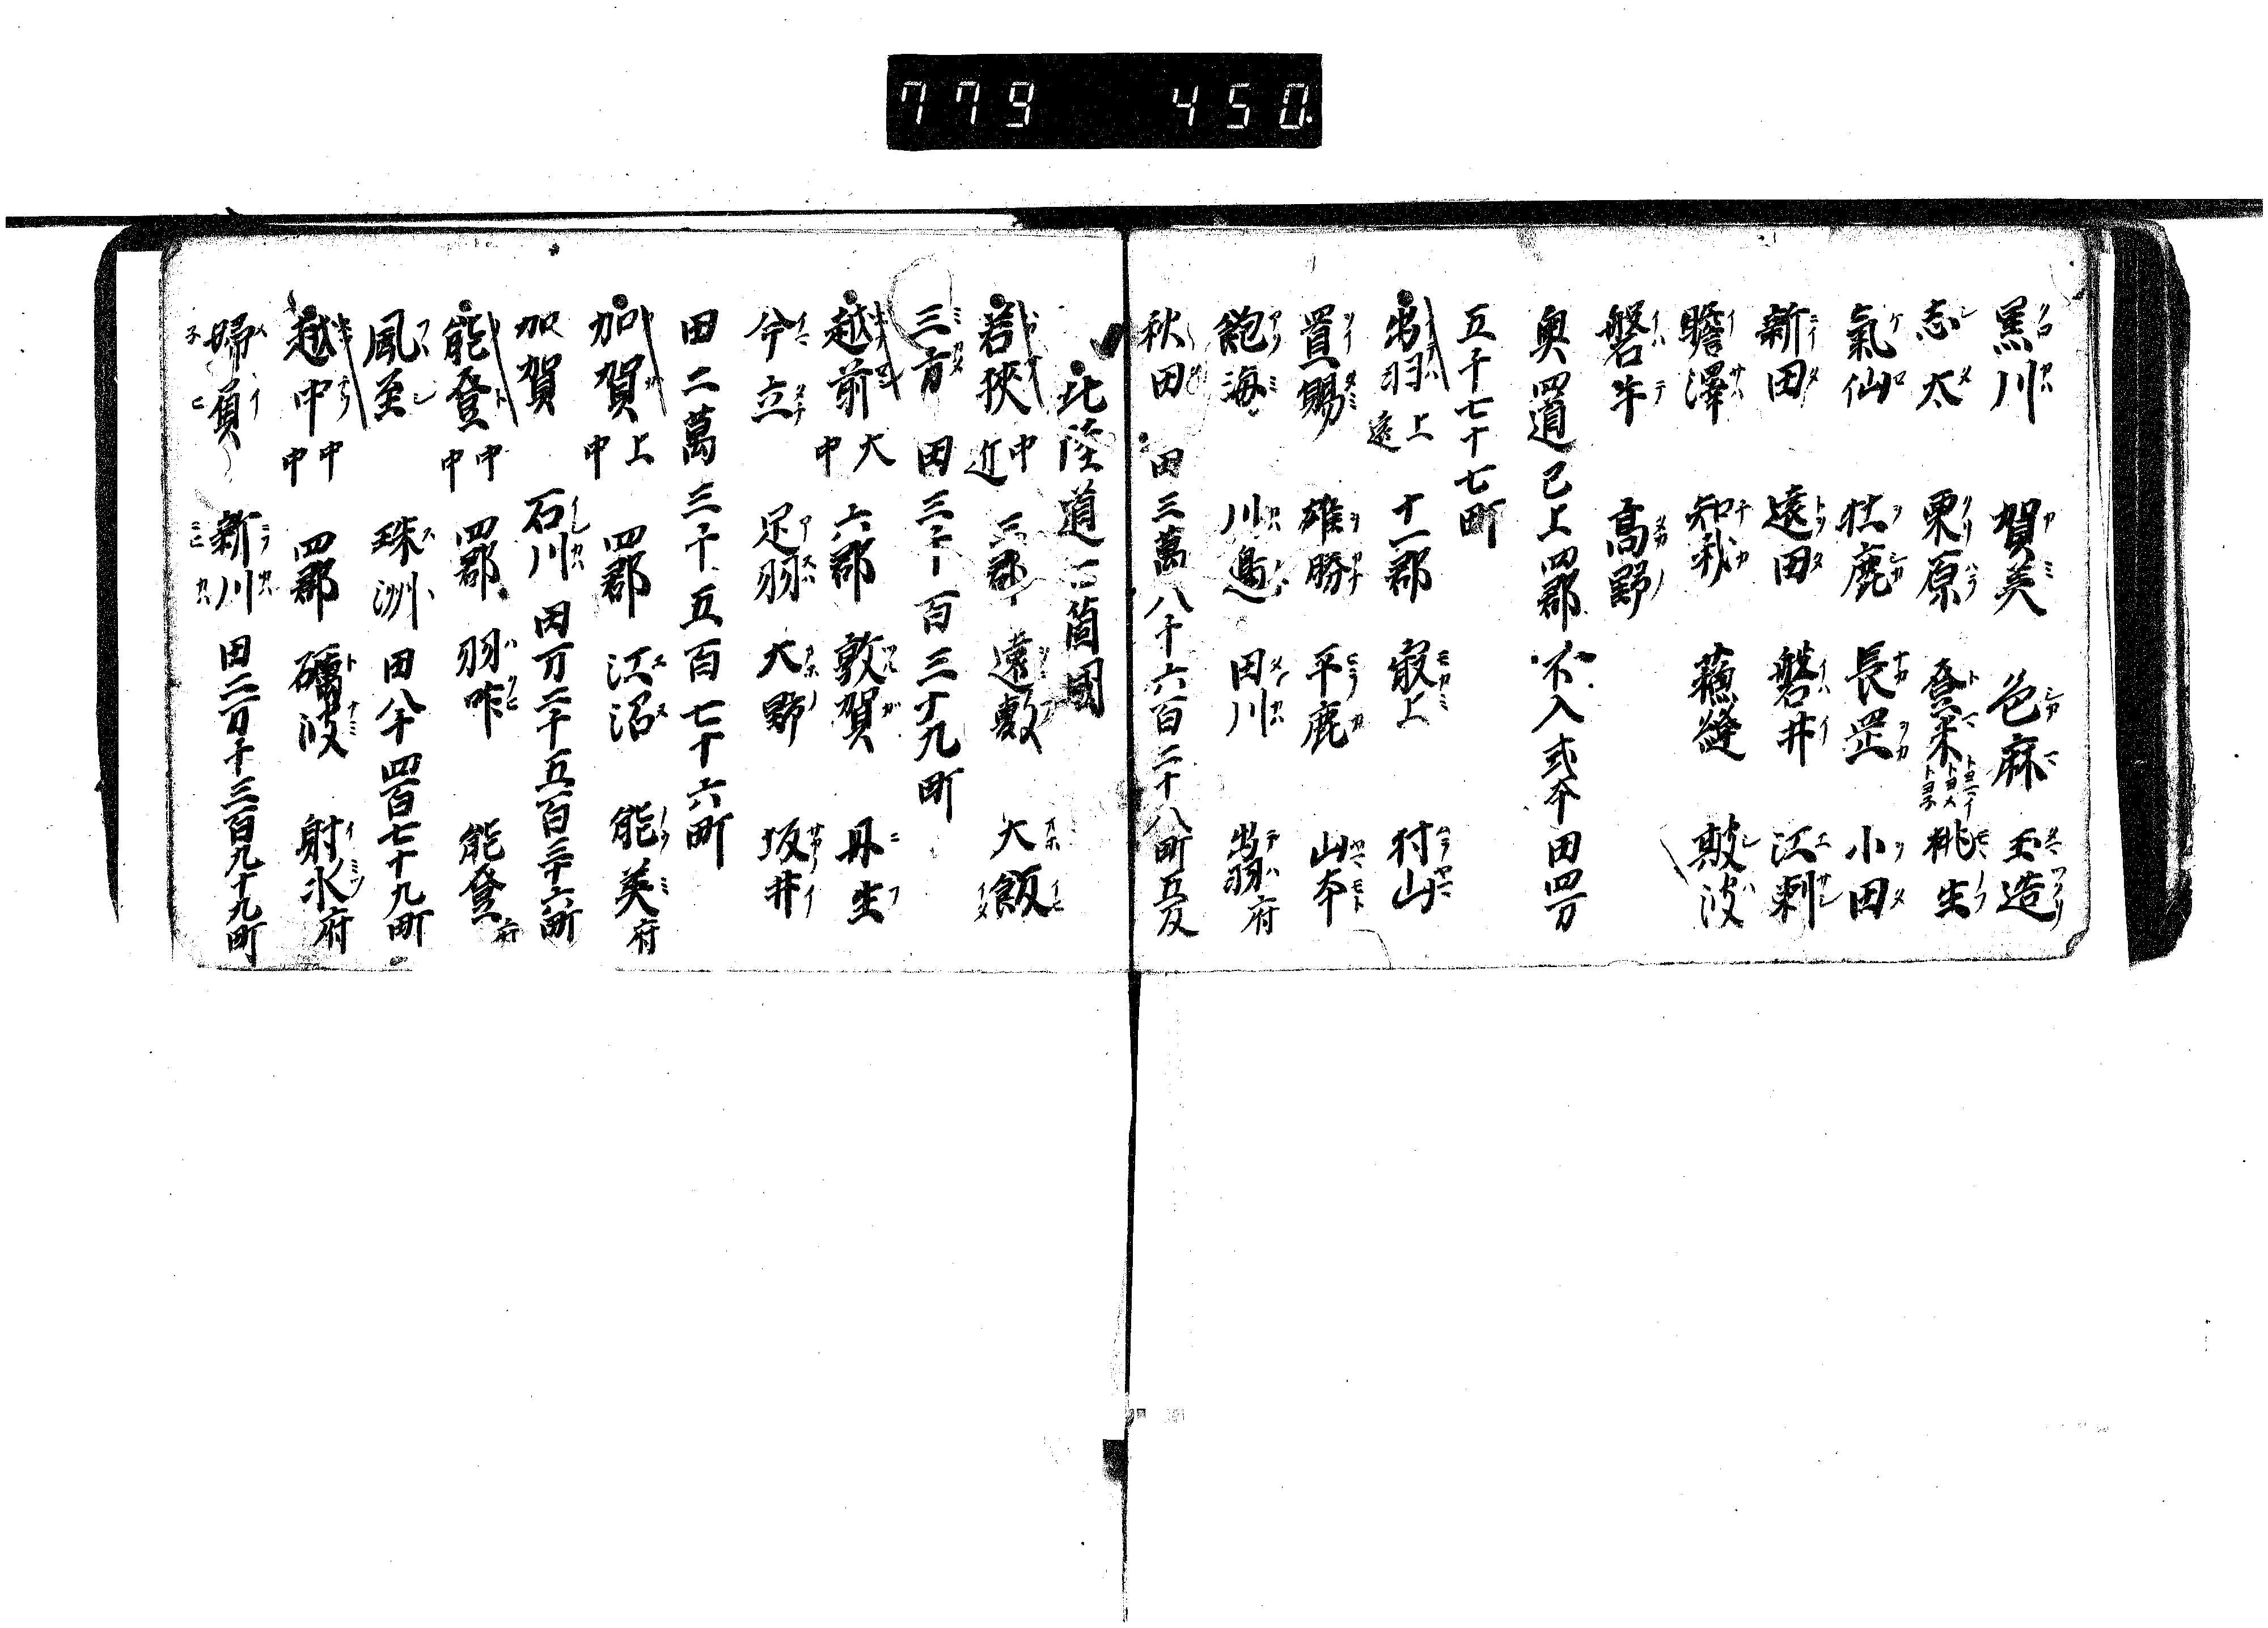 779 450
黒川 賀美 色麻 玉造
志太 栗原 登米 桃生
氣仙 牡鹿 長罡 小田
新田 遠田 磐井 江刺
膽澤 知我 蘓縫 斯波
磐牛 高野
奥四道已上四郡 不入式本 田四万
五千七十七町
出羽 上遠 十一郡 寂上 村山
置賜 雄勝 平鹿 山本
飽海 川邉 田川 出羽府
秋田 田三萬八千六百二十八町五反
北陸道七箇國
若狹 中近 三郡 遠敷 大飯
三方 田三千一百三十九町
越前 大中 六郡 敦賀 丹生
今立 足羽 大野 坂井
田二萬三千五百七十六町
加賀 上中 四郡 江沼 能美府
加賀 石川 田万二千五百三十六町
能登 中中 四郡 羽咋 能登府
風至 珠洲 田八千四百七十九町
越中 中中 四郡 礪波 射水府
婦負 新川 田二万千三百九十九町